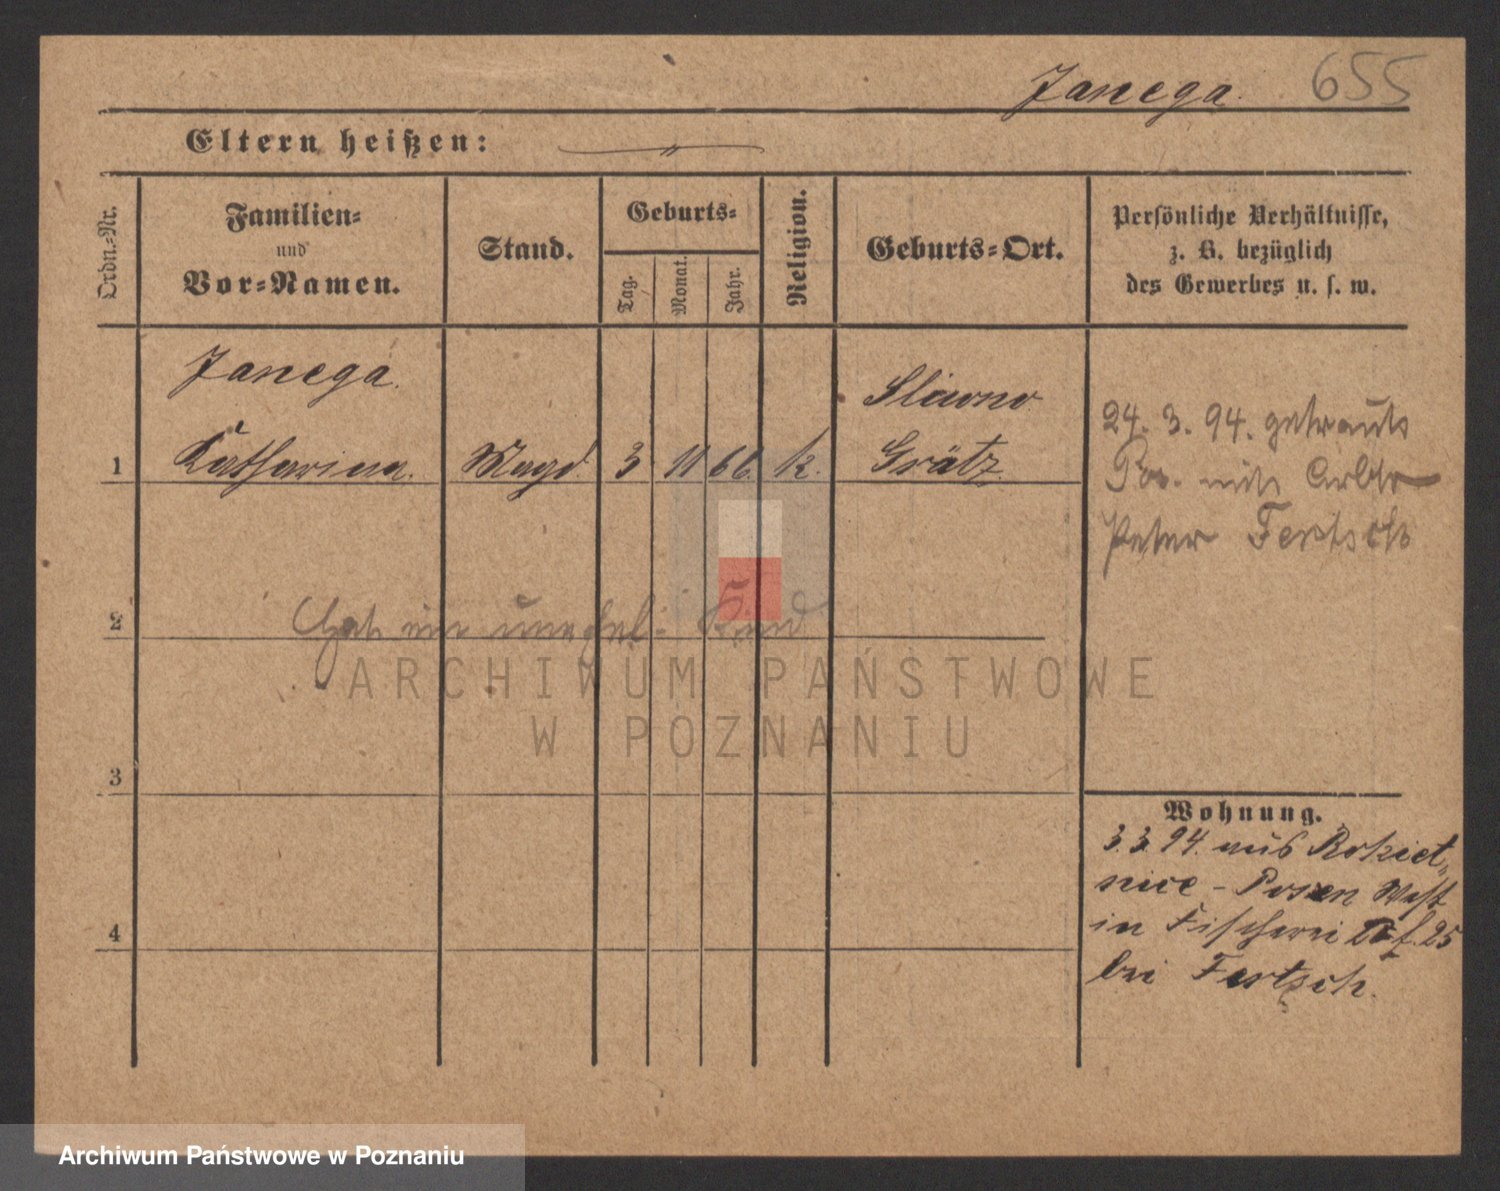 Janega. 655
Eltern heißen:
Ordn.-Nr.
Familien-
und
Vor-Namen.
Stand.
Geburts-
Tag.
Monat.
Jahr.
Religion.
Geburts-Ort.
Persönliche Verhältnisse,
z. B. bezüglich
des Gewerbes u. s. w.
Janega.
1 Katharina. Magd. 3 11 66. k.
Sliwno
Grätz.
24. 3. 94. getrauts
Pos. mit Arbtr
Peter Fertsch
2 Hat ein unehel. Kind
3
4
Wohnung.
3. 3. 94. aus Rokiet-
nice - Posen West
in Fischerei 25
bei Fertsch.
ARCHIWUM PAŃSTWOWE
W POZNANIU
Archiwum Państwowe w Poznaniu